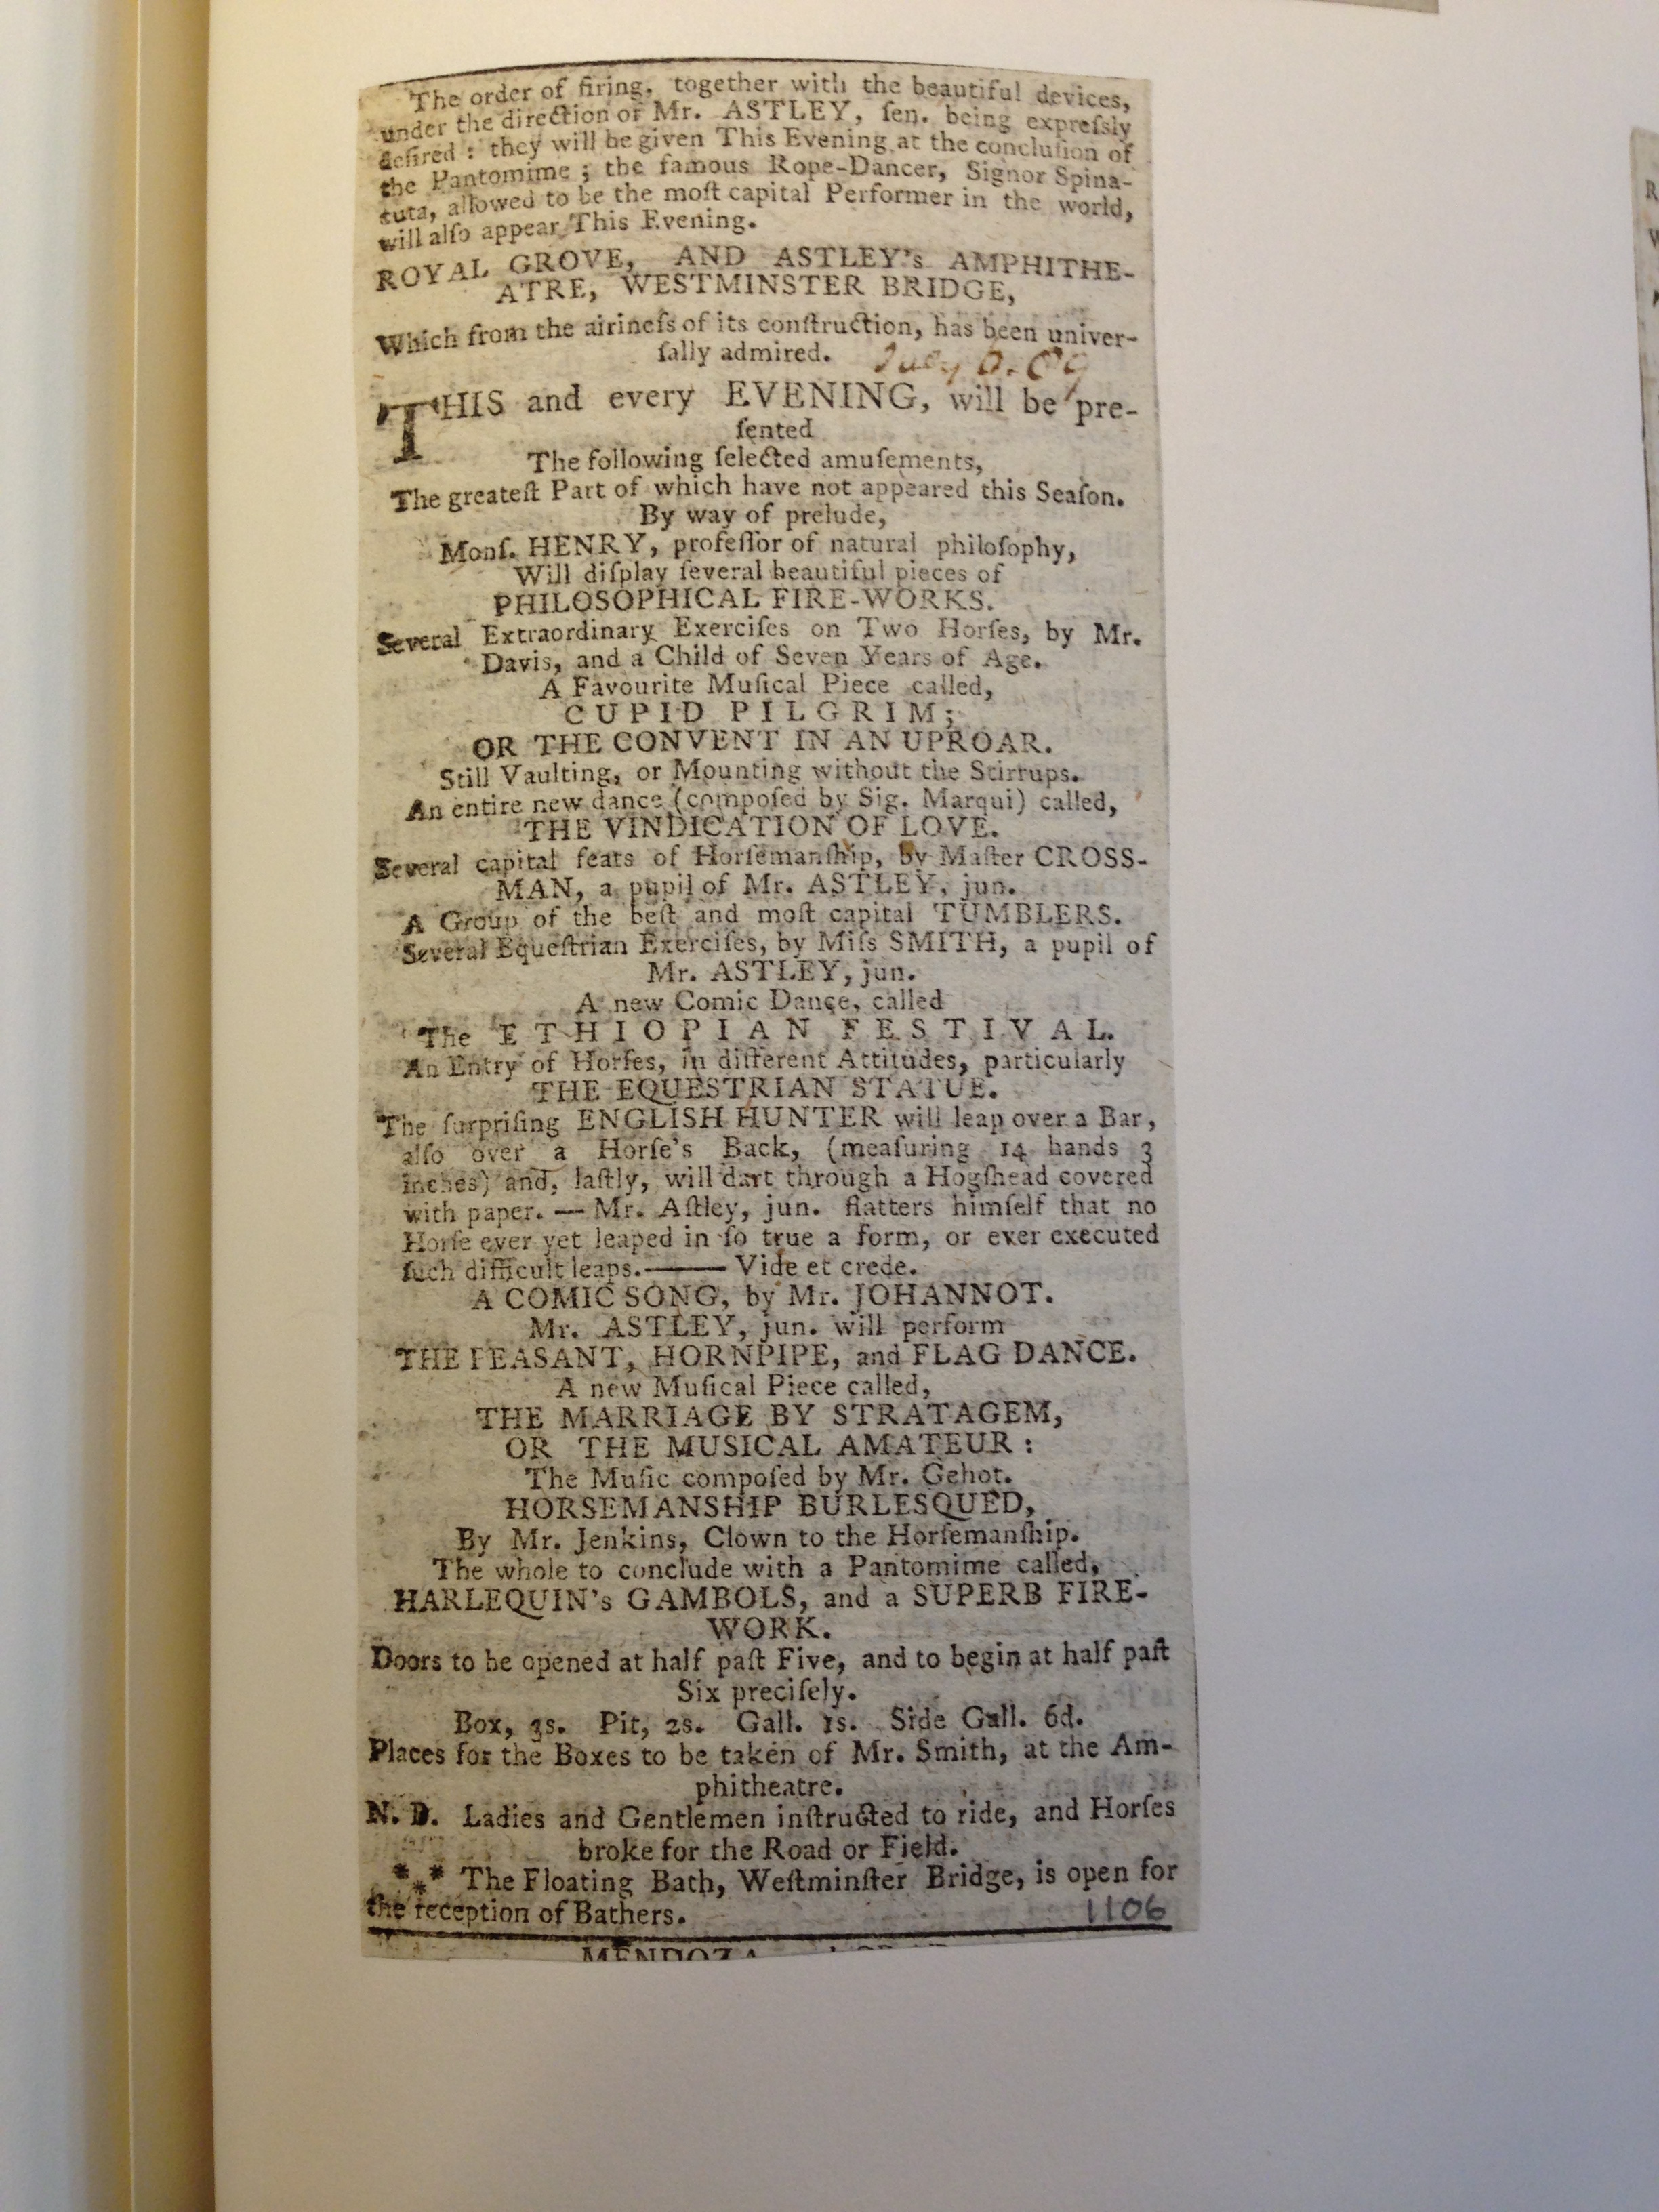 The order of firing, together with the beautiful devices,
under the direction of Mr. ASTLEY, ſen. being expreſsly
deſired : they will be given This Evening at the concluſion of
the Pantomime ; the famous Rope-Dancer, Signor Spina-
tuta, allowed to be the moſt capital Performer in the world,
will alſo appear This Evening.
ROYAL GROVE, AND ASTLEY's AMPHITHE-
ATRE, WESTMINSTER BRIDGE,
Which from the airineſs of its conſtruction, has been univer-
ſally admired.
THIS and every EVENING, will be pre-
ſented
The following ſelected amuſements,
The greateſt Part of which have not appeared this Seaſon.
By way of prelude,
Monſ. HENRY, profeſſor of natural philoſophy,
Will diſplay ſeveral beautiful pieces of
PHILOSOPHICAL FIRE-WORKS.
Several Extraordinary Exerciſes on Two Horſes, by Mr.
Davis, and a Child of Seven Years of Age.
A Favourite Muſical Piece called,
CUPID PILGRIM;
OR THE CONVENT IN AN UPROAR.
Still Vaulting, or Mounting without the Stirrups.
An entire new dance (compoſed by Sig. Marqui) called,
THE VINDICATION OF LOVE.
Several capital feats of Horſemanſhip, by Maſter CROSS-
MAN, a pupil of Mr. ASTLEY, jun.
A Group of the beſt and moſt capital TUMBLERS.
Several Equeſtrian Exerciſes, by Miſs SMITH, a pupil of
Mr. ASTLEY, jun.
A new Comic Dance, called
The ETHIOPIAN FESTIVAL.
An Entry of Horſes, in different Attitudes, particularly
THE EQUESTRIAN STATUE.
The ſurpriſing ENGLISH HUNTER will leap over a Bar,
alſo over a Horſe's Back, (meaſuring 14 hands 3
inches) and, laſtly, will dart through a Hogſhead covered
with paper. — Mr. Aſtley, jun. flatters himſelf that no
Horſe ever yet leaped in ſo true a form, or ever executed
ſuch difficult leaps.——— Vide et crede.
A COMIC SONG, by Mr. JOHANNOT.
Mr. ASTLEY, jun. will perform
THE PEASANT, HORNPIPE, and FLAG DANCE.
A new Muſical Piece called,
THE MARRIAGE BY STRATAGEM,
OR THE MUSICAL AMATEUR :
The Muſic compoſed by Mr. Gehot.
HORSEMANSHIP BURLESQUED,
By Mr. Jenkins, Clown to the Horſemanſhip.
The whole to conclude with a Pantomime called,
HARLEQUIN's GAMBOLS, and a SUPERB FIRE-
WORK.
Doors to be opened at half paſt Five, and to begin at half paſt
Six preciſely.
Box, 3s. Pit, 2s. Gall. 1s. Side Gall. 6d.
Places for the Boxes to be taken of Mr. Smith, at the Am-
phitheatre.
N. B. Ladies and Gentlemen inſtructed to ride, and Horſes
broke for the Road or Field.
*** The Floating Bath, Weſtminſter Bridge, is open for
the reception of Bathers.
1106
MENDOZA